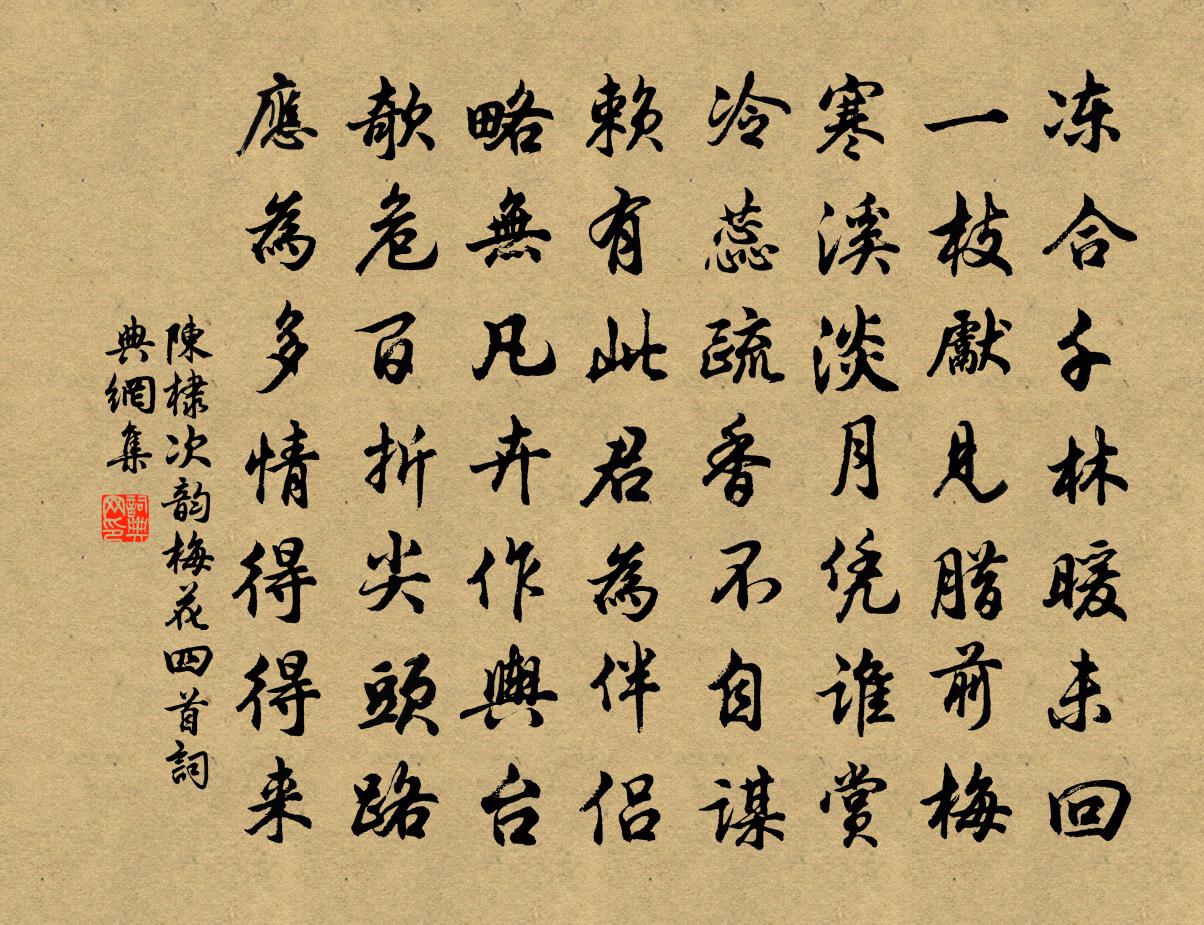 冻合千林暖未回
一枝獻見腊前梅
寒溪淡月凭谁賞
冷蕊疏香不自谋
賴有此君為伴侣
略無凡卉作輿台
欹危百折尖頭路
應為多情得得来
陳棣次韵梅花四首詞
典網集
詞典网印